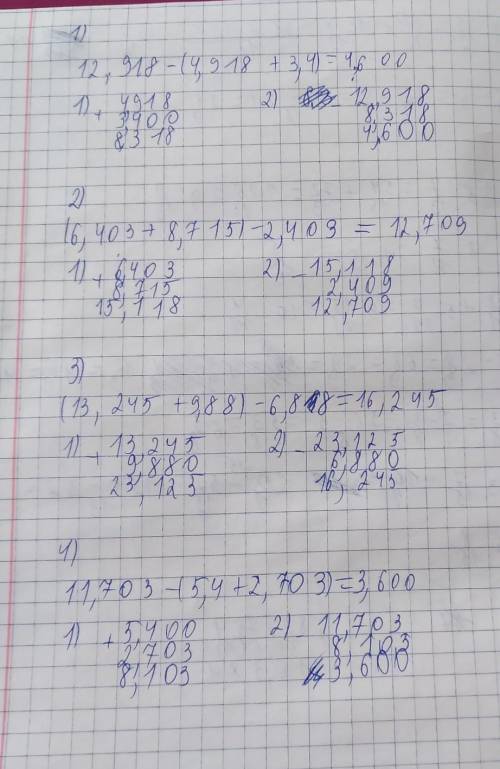 1)
12,918-(4,918 + 3,4)=4,600
1) + 4918 2) - 12,918
3,400 8,318
8,318 4,600
2)
(6,403+8,715)-2,409 = 12,709
1) + 6,403 2) - 15,118
8,715 2,409
15,118 12,709
3)
(13,245 +9,88)-6,88=16,245
1) - 13,245 2) - 23,125
9,880 6,880
23,125 16,245
4)
11,703-(5,4+2,703)=3,600
1) + 5,400 2) - 11,703
2,703 8,103
8,103 3,600